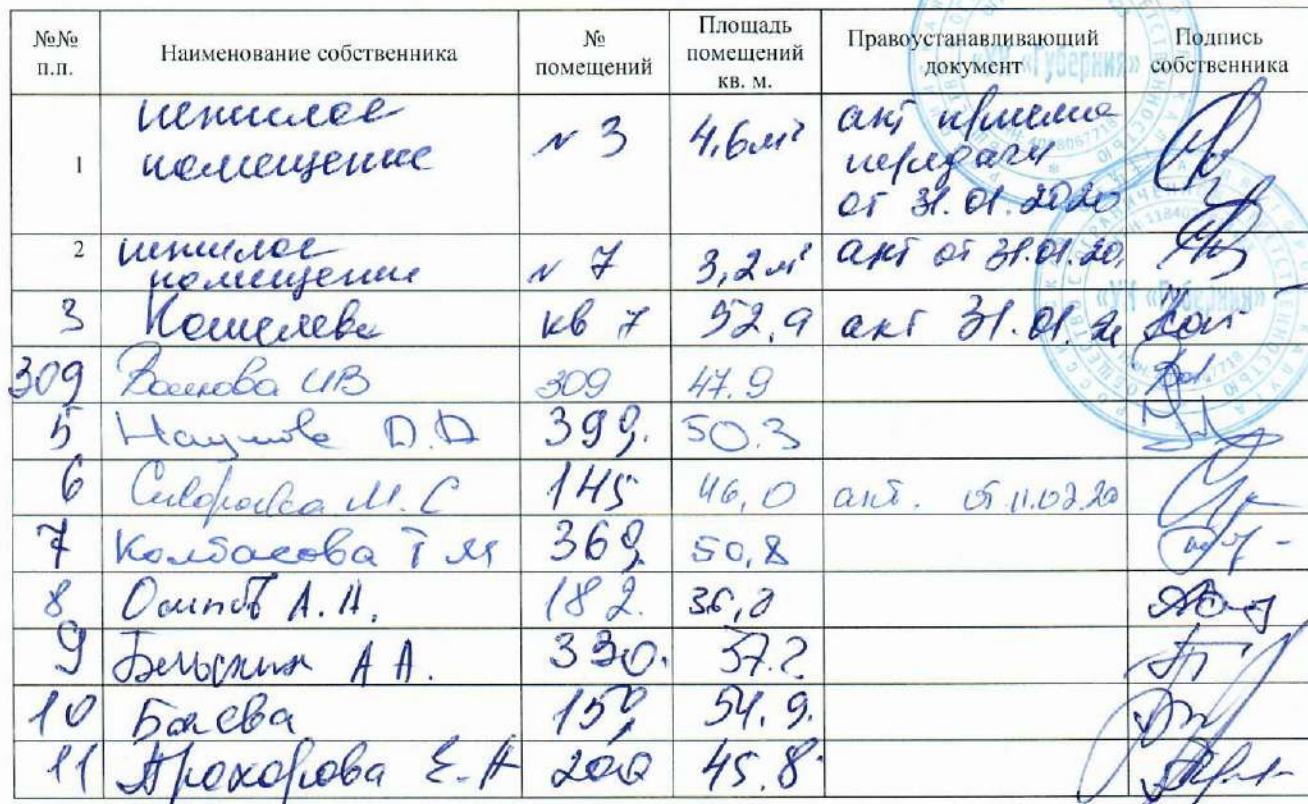 №№ п.п. Наименование собственника № помещений Площадь помещений кв. м. Правоустанавливающий документ Подпись собственника
1 нежилое помещение № 3 4,6 м² акт приема передачи от 31.01.2020
2 нежилое помещение № 7 3,2 м² акт от 31.01.20
3 Кошелева кв 7 52,9 акт 31.01.
309 309 47.9
5 Наумова D.D 399. 50.3
6 М.С 145 46,0 акт. от 11.02.20
7 Колбасова Т М 369 50,8
8 Осипов А. Н. 182.
9 А А. 330.
10 Баева 159 54.9.
11 Прохорова Е. А 200 45.8
«УК «Губерния»